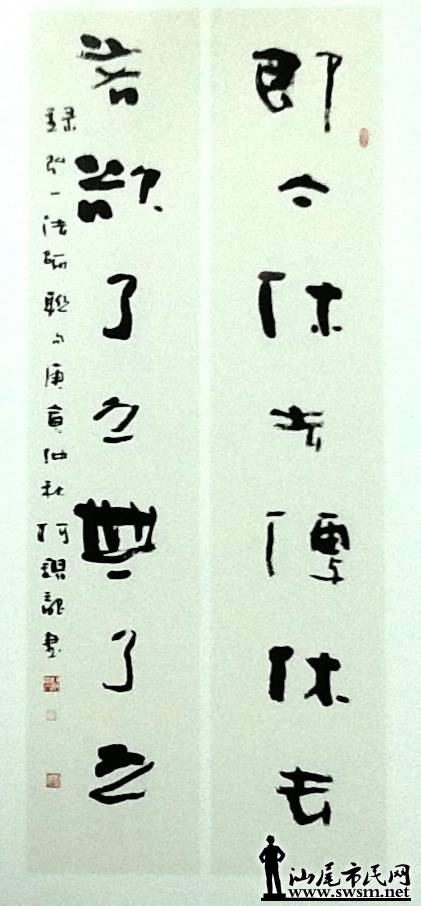 即今休去便休去
若欲了之無了之
錄弘一法師聯句庚寅仲秋 龍書
汕尾市民网
www.swsm.net